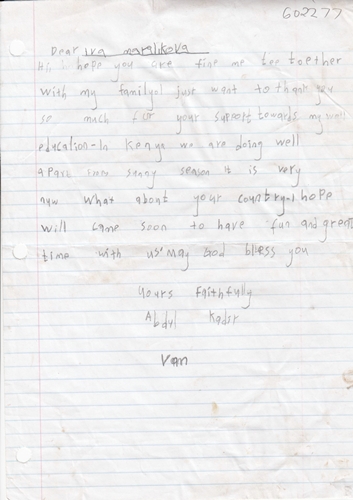 602277
Dear Iva maralikova
Hi i hope you are fine me too together
with my family-I just want to thank you
so much for your support towards my
education-In Kenya we are doing well
apart from sunny season it is very
now what about your country-I hope
will came soon to have fun and great
time with us'may God bless you
Yours Faithfully
Abdul Kadir
Van